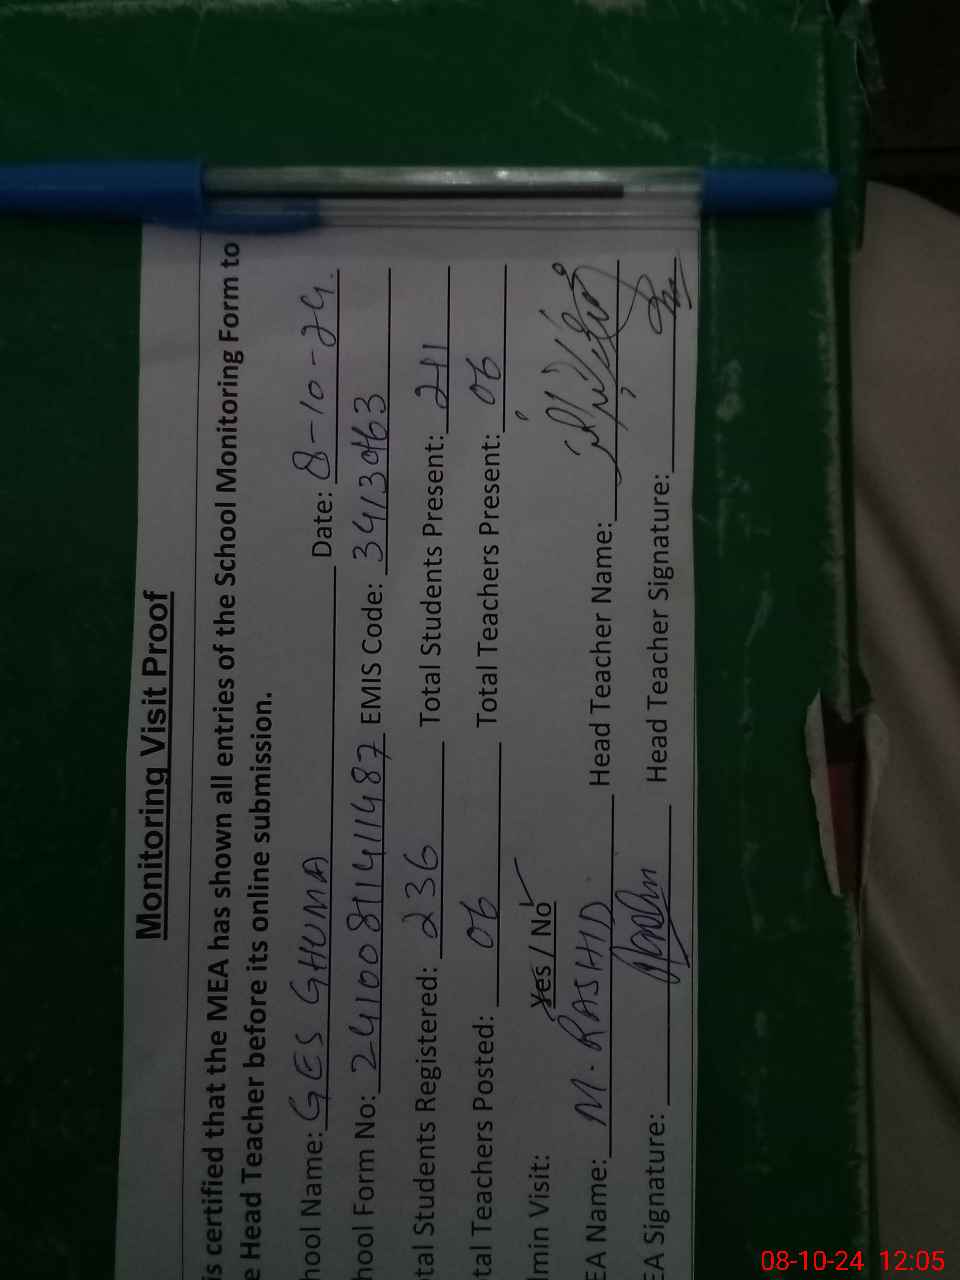 Monitoring Visit Proof
is certified that the MEA has shown all entries of the School Monitoring Form to
e Head Teacher before its online submission.
hool Name: GES GHUMA Date: 8-10-24.
hool Form No: 24100811411487 EMIS Code: 34130463
tal Students Registered: 236 Total Students Present: 211
tal Teachers Posted: 06 Total Teachers Present: 06
lmin Visit: Yes / No
EA Name: M. RASHID Head Teacher Name:
EA Signature: Head Teacher Signature:
08-10-24 12:05